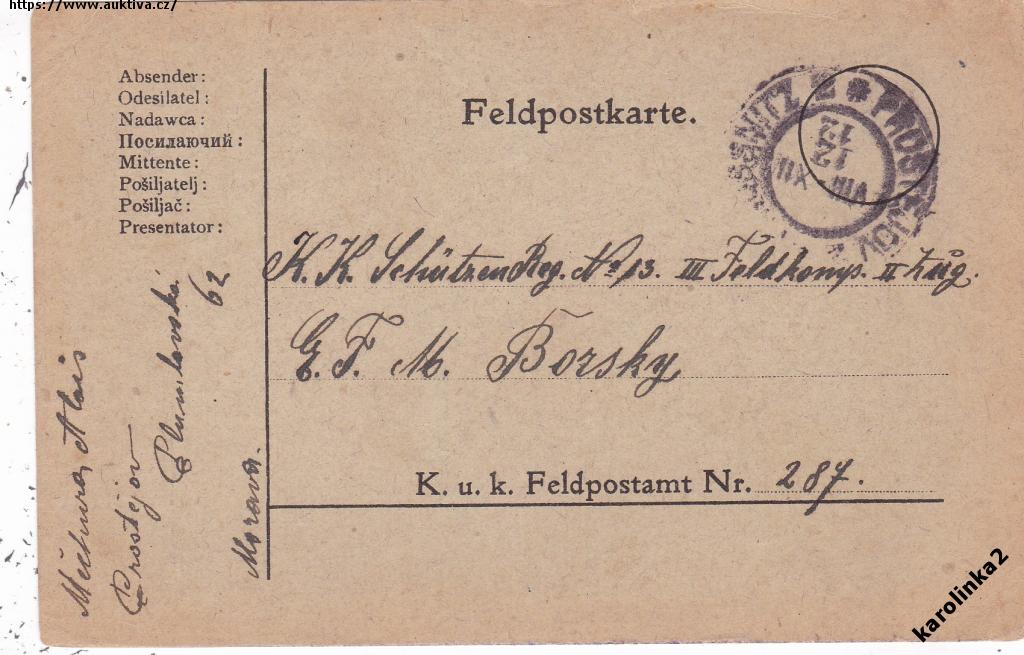 https://www.auktiva.cz/
Absender:
Odesilatel:
Nadawca:
Посилаючий:
Mittente:
Pošiljatelj:
Pošiljač:
Presentator:
Feldpostkarte.
PROSTĚJOV
PROSSNITZ
K. K. Schützen Reg. No 13. III Feldkomp. II Zug.
E. F. M. Borsky
K. u. k. Feldpostamt Nr. 287.
Alois
Prostějov
Plumlovská
62
Morava.
karolinka2